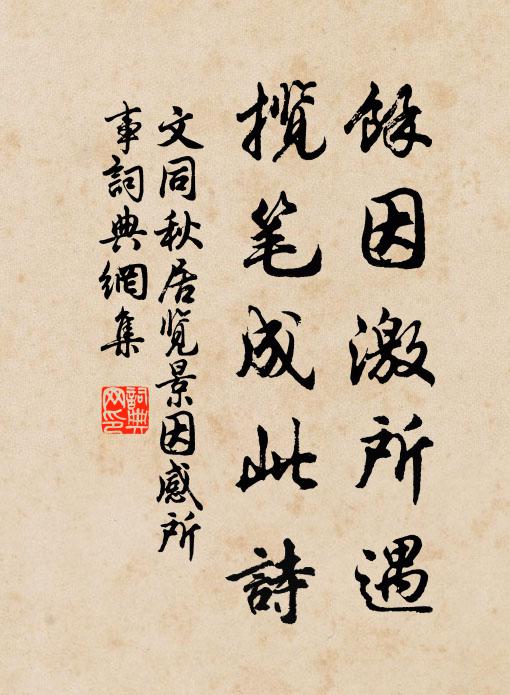 餘因激所遇
揽笔成此詩
文同秋居览景因感所
事詞典網集
詞典
网印